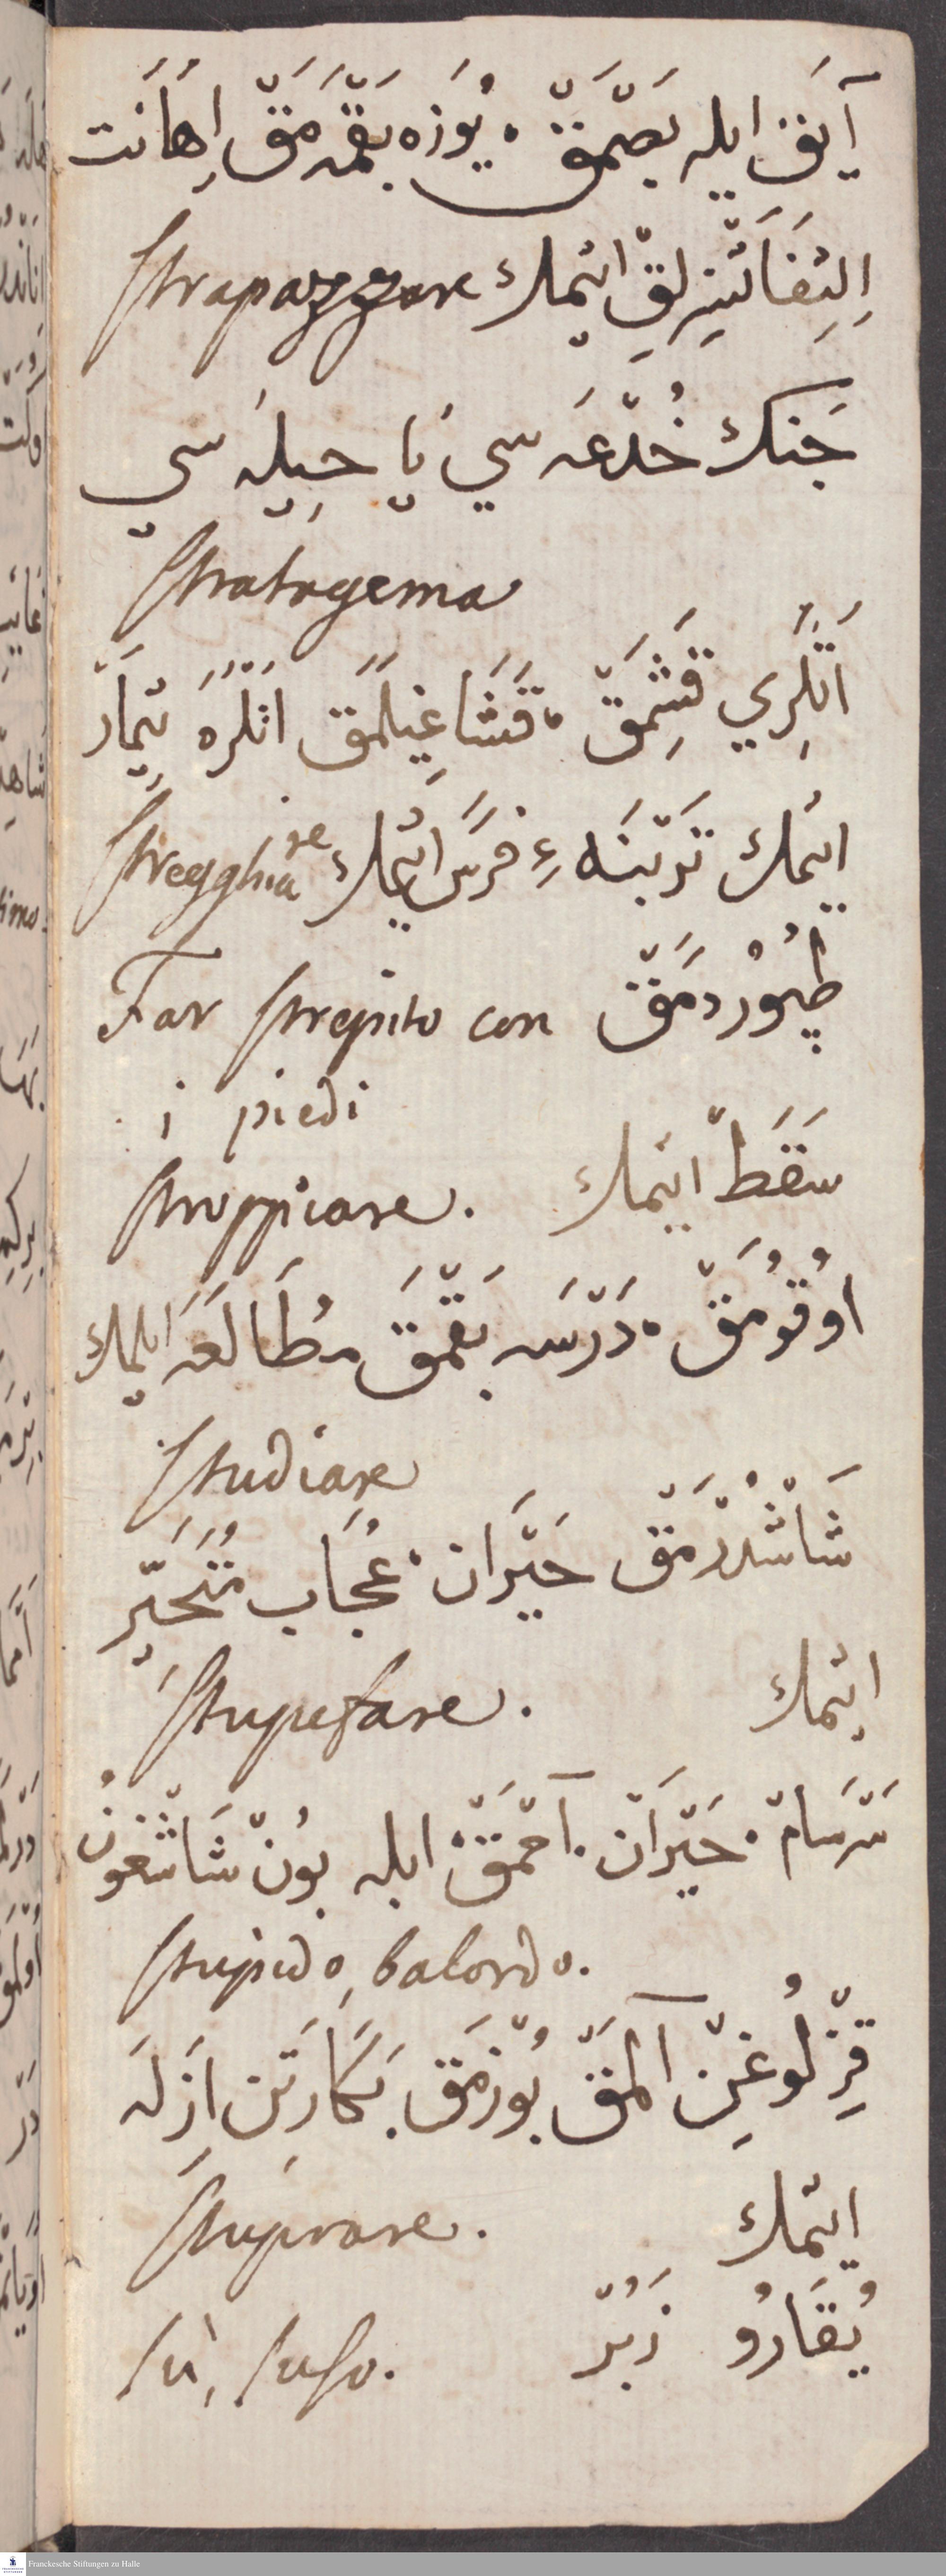 آیَق ایله بَصّمَقّ ۰ یُوَزه بقّمَه‌مَقّ اِهَانَت
اِلتِفَاتّسِزلِقّ ایتمك Strapazzare
جَنك خُدّعَه سي یَا حِیلَه سي
Stratagema
اَتلَرِي قَشِمَقّ ۰ قَشَاغِیلَمَق اتلَرَه تِیمَارّ
ایتمك تَرّبیَه ءِ فَرَسّ ایتمك Stregghiare
طپُوُرْدمَقّ Far strepito con
i piedi
سَقَطّ ایتمك Stroppiare.
اوُقوُمَقّ ۰ دَرّسَه بَقّمَقَ مُطَالَعَه ایلمك
Studiare
شَاشْدُرّمَقّ حَیّرَان ۰ عُجَاب مُتَحَیّر
ایتمك Stupefare.
سَرّسَامّ ۰ حَیّرَانّ ۰ آحّمَقّ ابله بوُنّ شَاشّغوُن
Stupido, balordo.
قِزّلُوغِنّ آلمَقّ بُوّزمَق بَكَارَتِن اِزَلَه
ایتمك Stuprare.
یُقَارُو زَبُرّ Sù, suso.
Franckesche Stiftungen zu Halle